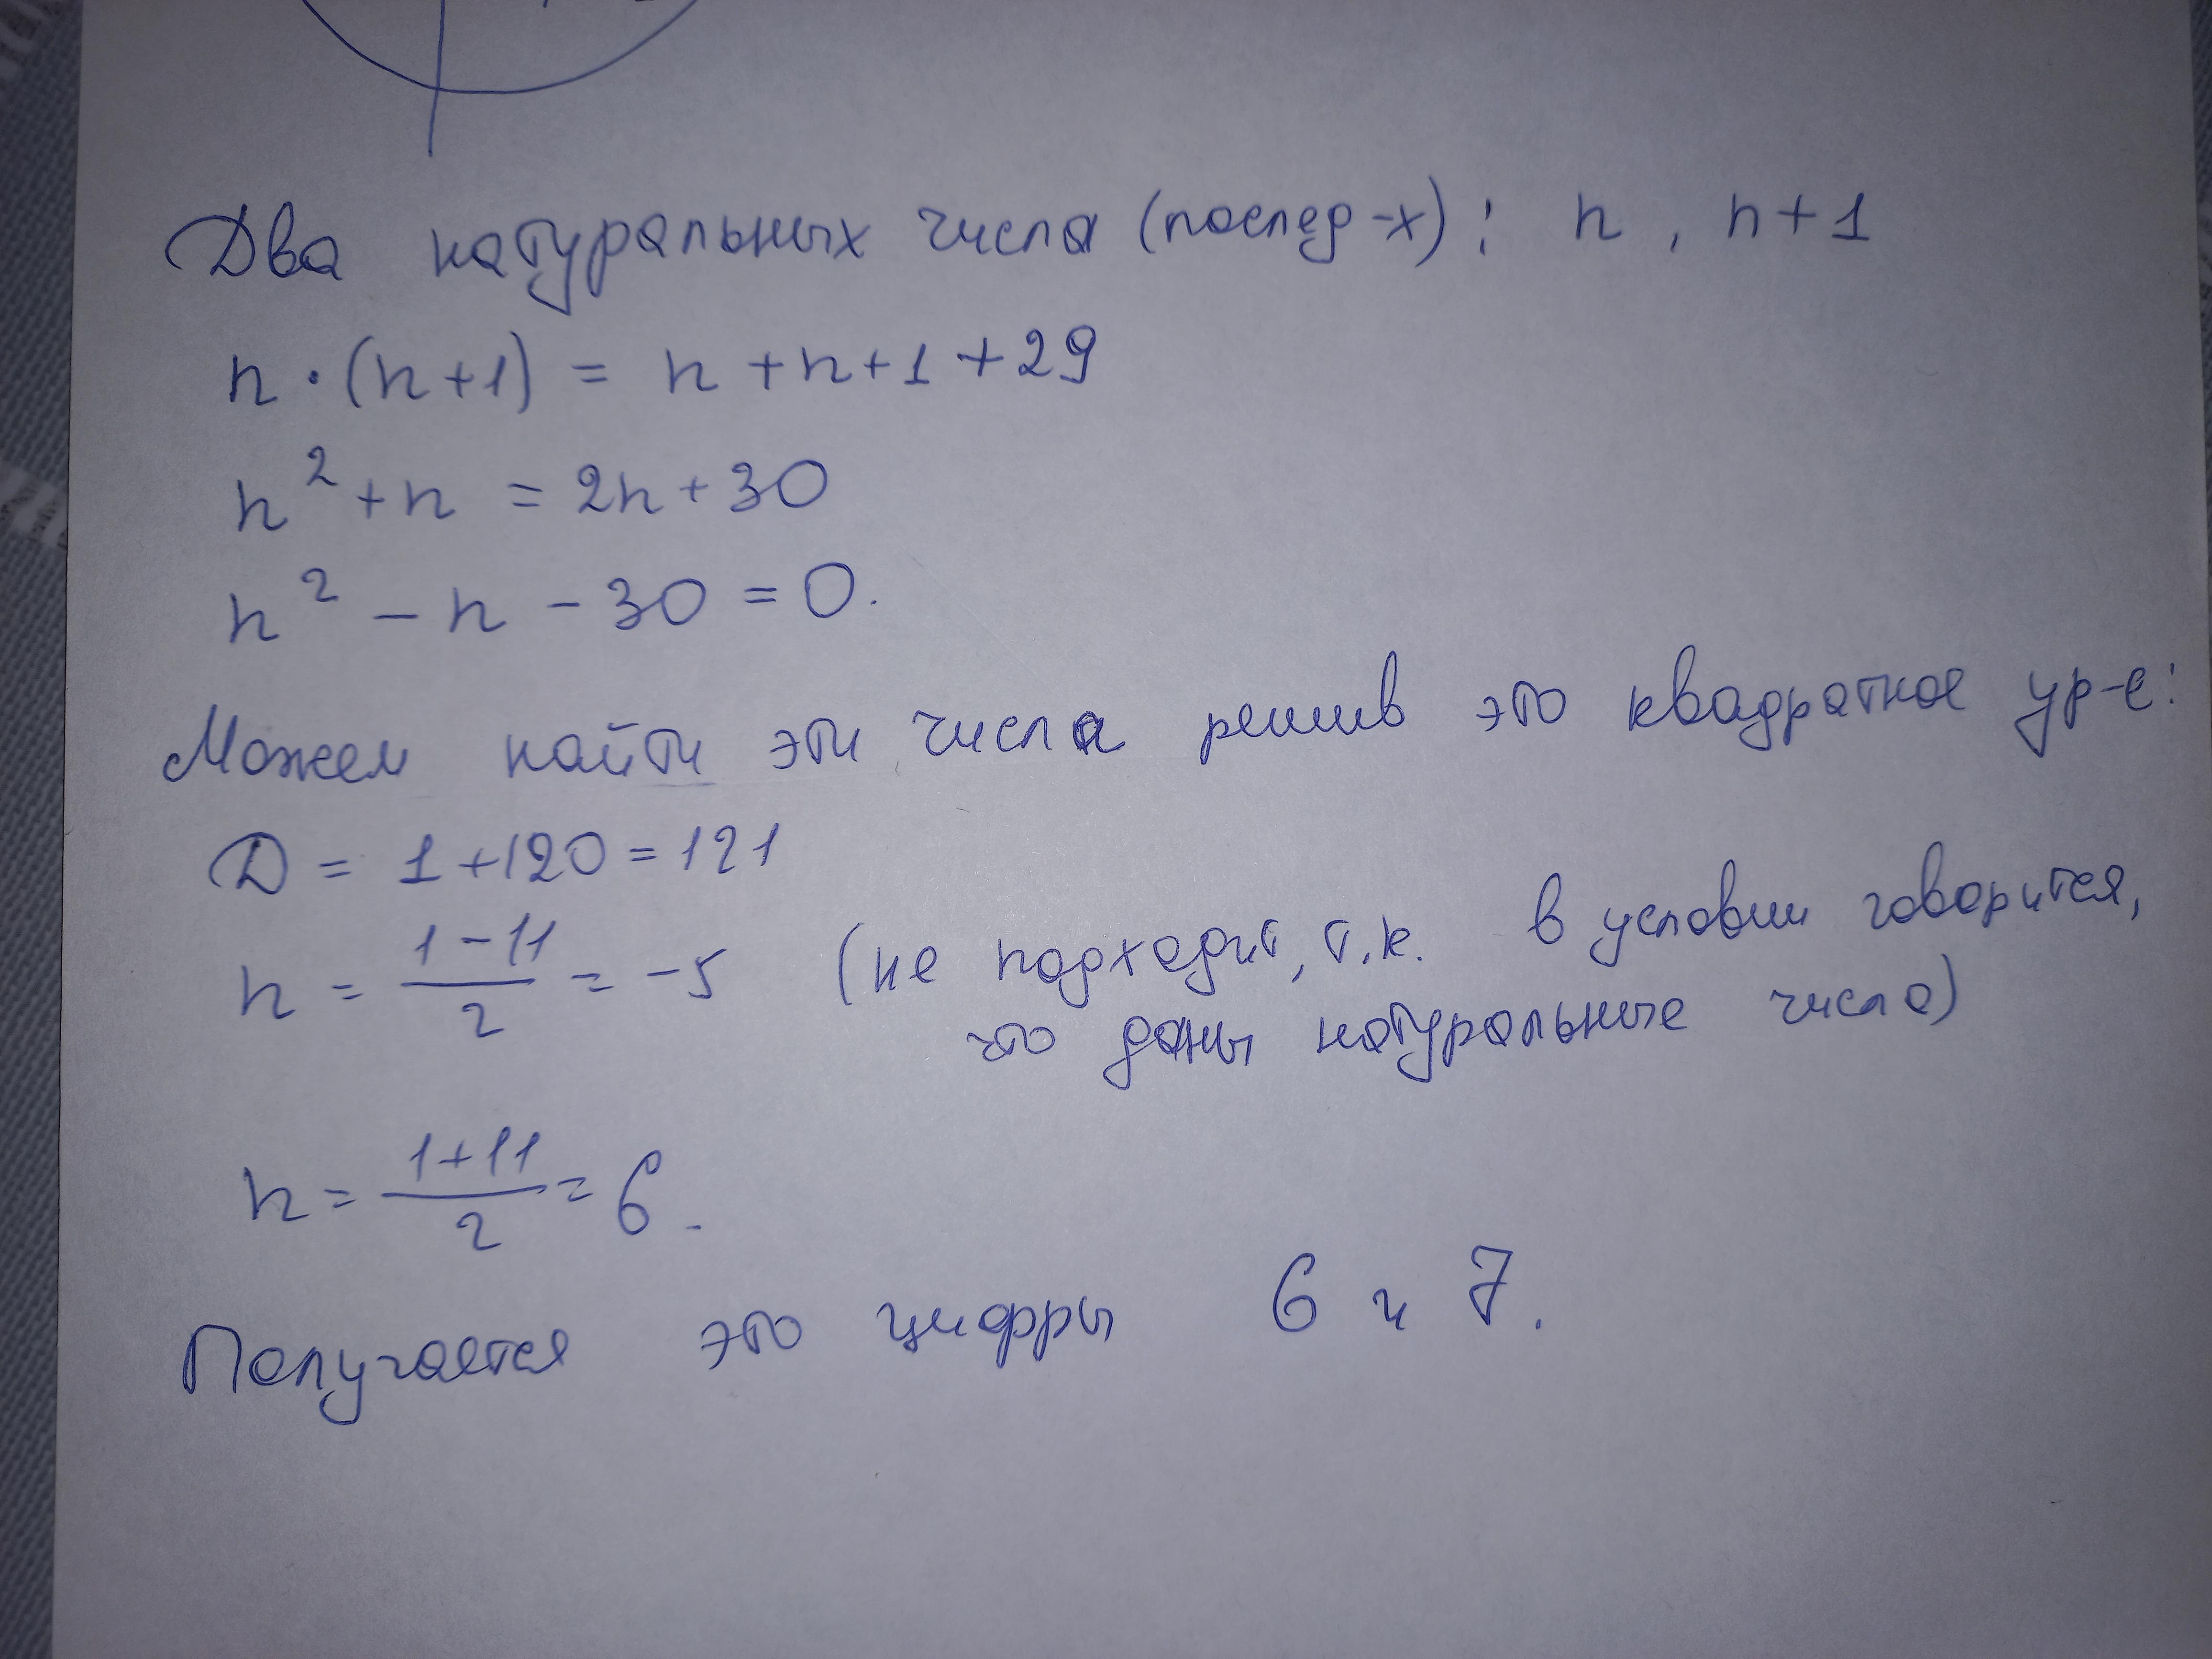 Два натуральных числа (послед-х): n, n+1
n·(n+1) = n+n+1+29
n²+n = 2n+30
n² - n - 30 = 0.
Можем найти эти числа решив это квадратное ур-е:
D = 1+120=121
n = (1-11)/2 = -5 (не подходит, т.к. в условии говорится,
что даны натуральные числа)
n = (1+11)/2 = 6.
Получается это цифры 6 и 7.